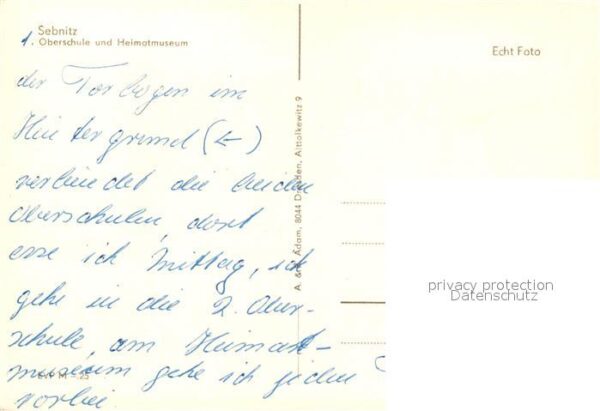 Sebnitz
1. Oberschule und Heimatmuseum
Echt Foto
der Torbogen im
Hintergrund (←)
verbindet die beiden
Oberschulen, dort
esse ich Mittag, ich
gehe in die 2. Ober-
schule, am Heimat-
museum gehe ich jeden
vorbei
Adam, 8044 Dresden, Altlolkewitz 9
EVP M -,25
privacy protection
Datenschutz